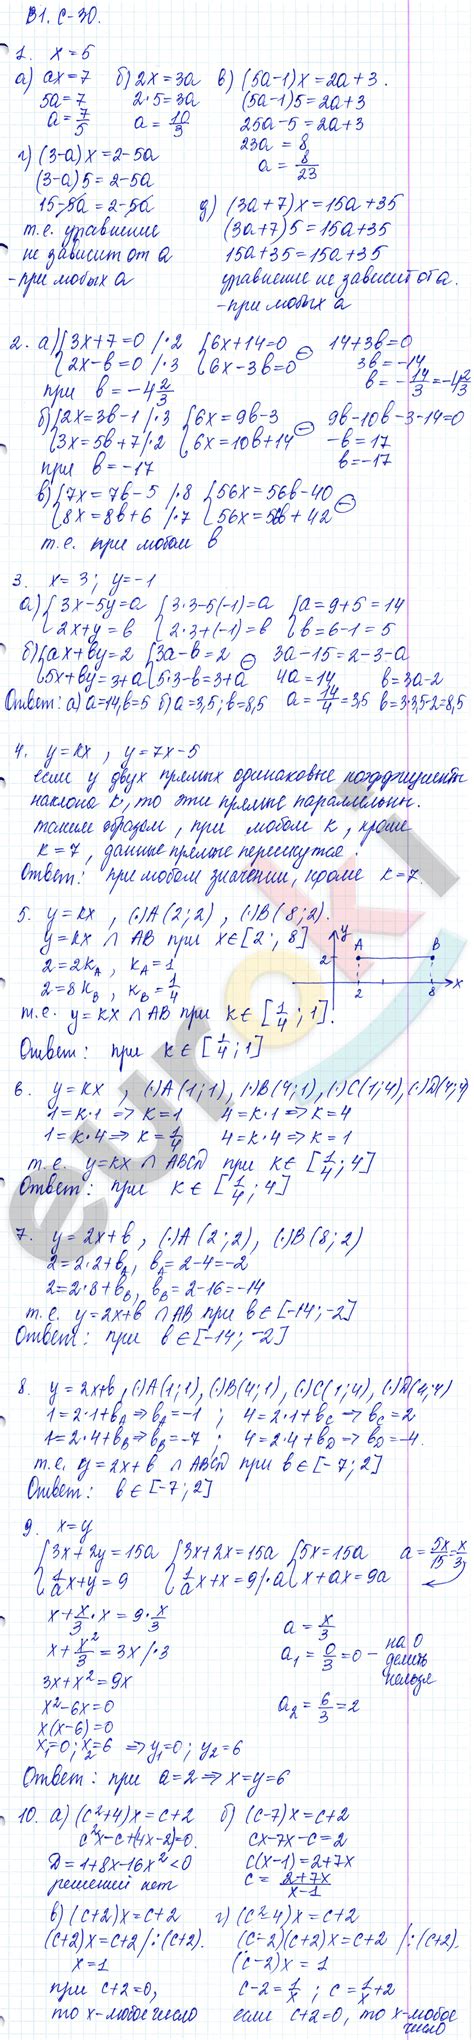 В1. С-30.
1. x = 5
а) ax = 7 б) 2x = 3a в) (5a-1)x = 2a+3.
5a = 7 2·5 = 3a (5a-1)5 = 2a+3
a = 7/5 a = 10/3 25a-5 = 2a+3
23a = 8
a = 8/23
г) (3-a)x = 2-5a
(3-a)5 = 2-5a
15-5a = 2-5a
т.е. уравнение
не зависит от a
- при любых a
д) (3a+7)x = 15a+35
(3a+7)5 = 15a+35
15a+35 = 15a+35
уравнение не зависит от a.
- при любых a
2. а) {3x+7=0 /·2 {6x+14=0 ⊖ 14+3b=0
{2x-b=0 /·3 {6x-3b=0 3b=-14
при b = -4 2/3 b = -14/3 = -4 2/3
б) {2x=3b-1 /·3 {6x=9b-3 ⊖ 9b-10b-3-14=0
{3x=5b+7 /·2 {6x=10b+14 -b=17
при b=-17 b=-17
в) {7x=7b-5 /·8 {56x=56b-40 ⊖
{8x=8b+6 /·7 {56x=56b+42
т.е. при любом b
3. x=3; y=-1
а) {3x-5y=a {3·3-5(-1)=a {a=9+5=14
{2x+y=b {2·3+(-1)=b {b=6-1=5
б) {ax+by=2 {3a-b=2 ⊖ 3a-15=2-3-a
{5x+by=3+a {5·3-b=3+a 4a=14 b=3a-2
Ответ: а) a=14, b=5 б) a=3,5; b=8,5 a=14/4=3,5 b=3·3,5-2=8,5
4. y=kx, y=7x-5
если у двух прямых одинаковые коэффициенты
наклона k, то эти прямые параллельны.
таким образом, при любом k, кроме
k=7, данные прямые пересекутся.
Ответ: при любом значении, кроме k=7.
5. y=kx, (·)A(2;2), (·)B(8;2).
y=kx ∩ AB при x∈[2;8]
2=2k_A, k_A=1
2=8k_B, k_B=1/4
т.е. y=kx ∩ AB при k∈[1/4;1].
Ответ: при k∈[1/4;1]
y
A B
2
2 8 x
6. y=kx, (·)A(1;1), (·)B(4;1), (·)C(1;4), (·)D(4;4)
1=k·1 => k=1 4=k·1 => k=4
1=k·4 => k=1/4 4=k·4 => k=1
т.е. y=kx ∩ ABCD при k∈[1/4;4]
Ответ: при k∈[1/4;4]
7. y=2x+b, (·)A(2;2), (·)B(8;2)
2=2·2+b_A, b_A=2-4=-2
2=2·8+b_B, b_B=2-16=-14
т.е. y=2x+b ∩ AB при b∈[-14;-2]
Ответ: при b∈[-14;-2]
8. y=2x+b, (·)A(1;1), (·)B(4;1), (·)C(1;4), (·)D(4;4)
1=2·1+b_A => b_A=-1; 4=2·1+b_C => b_C=2
1=2·4+b_B => b_B=-7; 4=2·4+b_D => b_D=-4.
т.е. y=2x+b ∩ ABCD при b∈[-7;2]
Ответ: b∈[-7;2]
9. x=y
{3x+2y=15a {3x+2x=15a {5x=15a a=5x/15=x/3
{1/a x+y=9 {1/a x+x=9 /·a {x+ax=9a
x+x/3·x=9·x/3 a=x/3
x+x²/3=3x /·3 a₁=0/3=0 - на 0
делить
нельзя
3x+x²=9x
x²-6x=0 a₂=6/3=2
x(x-6)=0
x₁=0; x₂=6 => y₁=0; y₂=6
Ответ: при a=2 => x=y=6
10. а) (c²+4)x=c+2 б) (c-7)x=c+2
c²x-c+(4x-2)=0. cx-7x-c=2
D=1+8x-16x²<0 c(x-1)=2+7x
решений нет c=2+7x/x-1
в) (c+2)x=c+2 г) (c²-4)x=c+2
(c+2)x=c+2 /:(c+2). (c-2)(c+2)x=c+2 /:(c+2).
x=1 (c-2)x=1
при c+2=0, c-2=1/x; c=1/x+2
то x-любое число если c+2=0, то x-любое
число
euroki